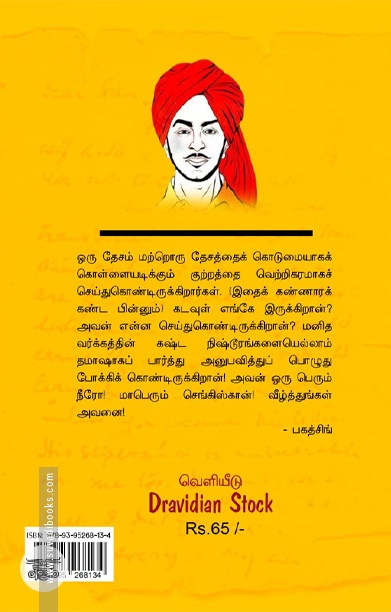 ஒரு தேசம் மற்றொரு தேசத்தைக் கொடுமையாகக்
கொள்ளையடிக்கும் குற்றத்தை வெற்றிகரமாகச்
செய்துகொண்டிருக்கிறார்கள். (இதைக் கண்ணாரக்
கண்ட பின்னும்) கடவுள் எங்கே இருக்கிறான்?
அவன் என்ன செய்துகொண்டிருக்கிறான்? மனித
வர்க்கத்தின் கஷ்ட நிஷ்டூரங்களையெல்லாம்
தமாஷாகப் பார்த்து அனுபவித்துப் பொழுது
போக்கிக் கொண்டிருக்கிறான்! அவன் ஒரு பெரும்
நீரோ! மாபெரும் செங்கிஸ்கான்! வீழ்த்துங்கள்
அவனை!
- பகத்சிங்
வெளியீடு
Dravidian Stock
Rs.65 /-
268134